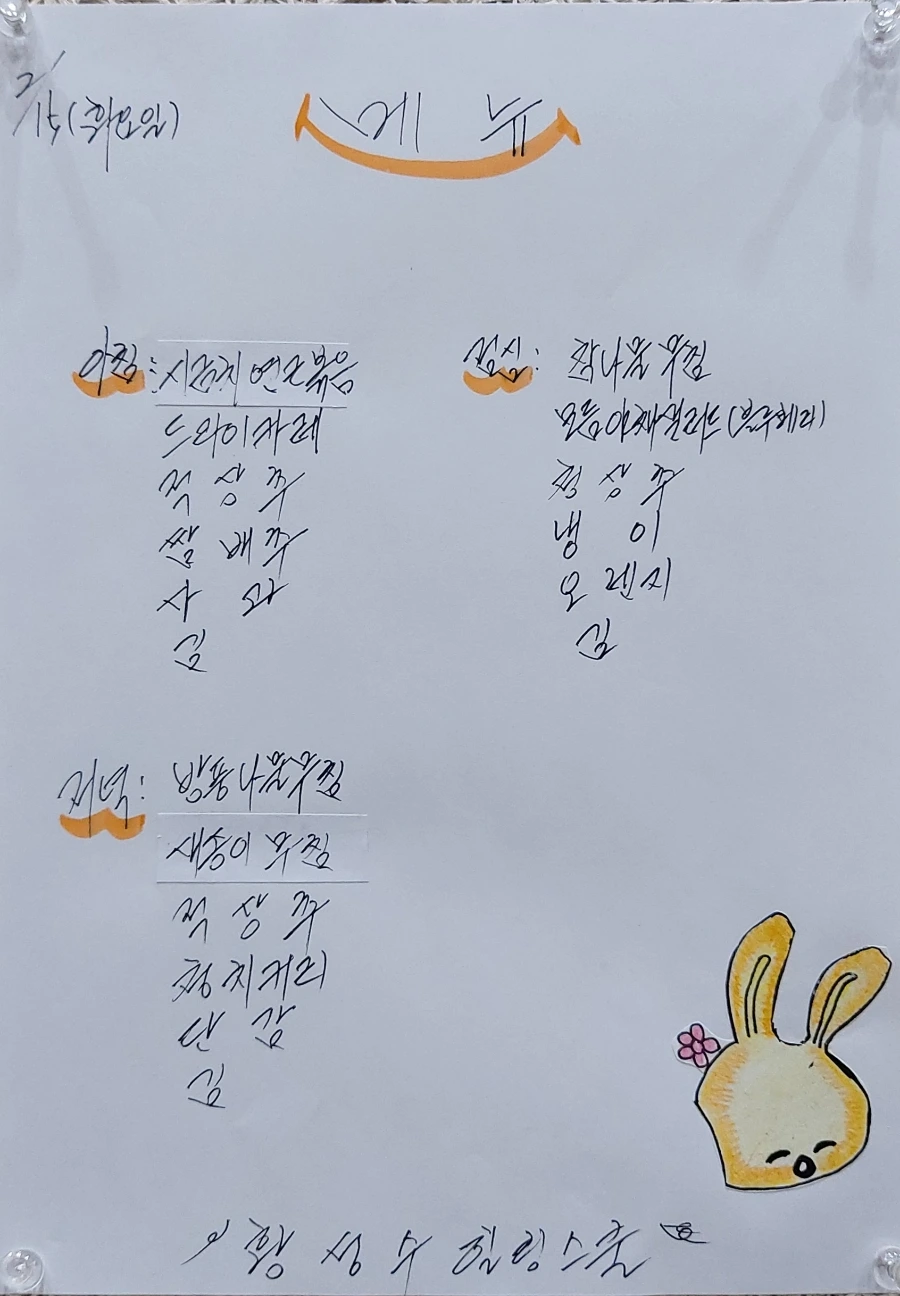 2/15(화요일)
메뉴
아침: 시금치 연근볶음
드와이카레
적상추
쌈배추
사과
김
점심: 참나물 무침
모듬야채샐러드(블루베리)
청상추
냉이
오렌지
김
저녁: 방풍나물무침
새송이 무침
적상추
청치커리
단감
김
황성수 힐링스쿨